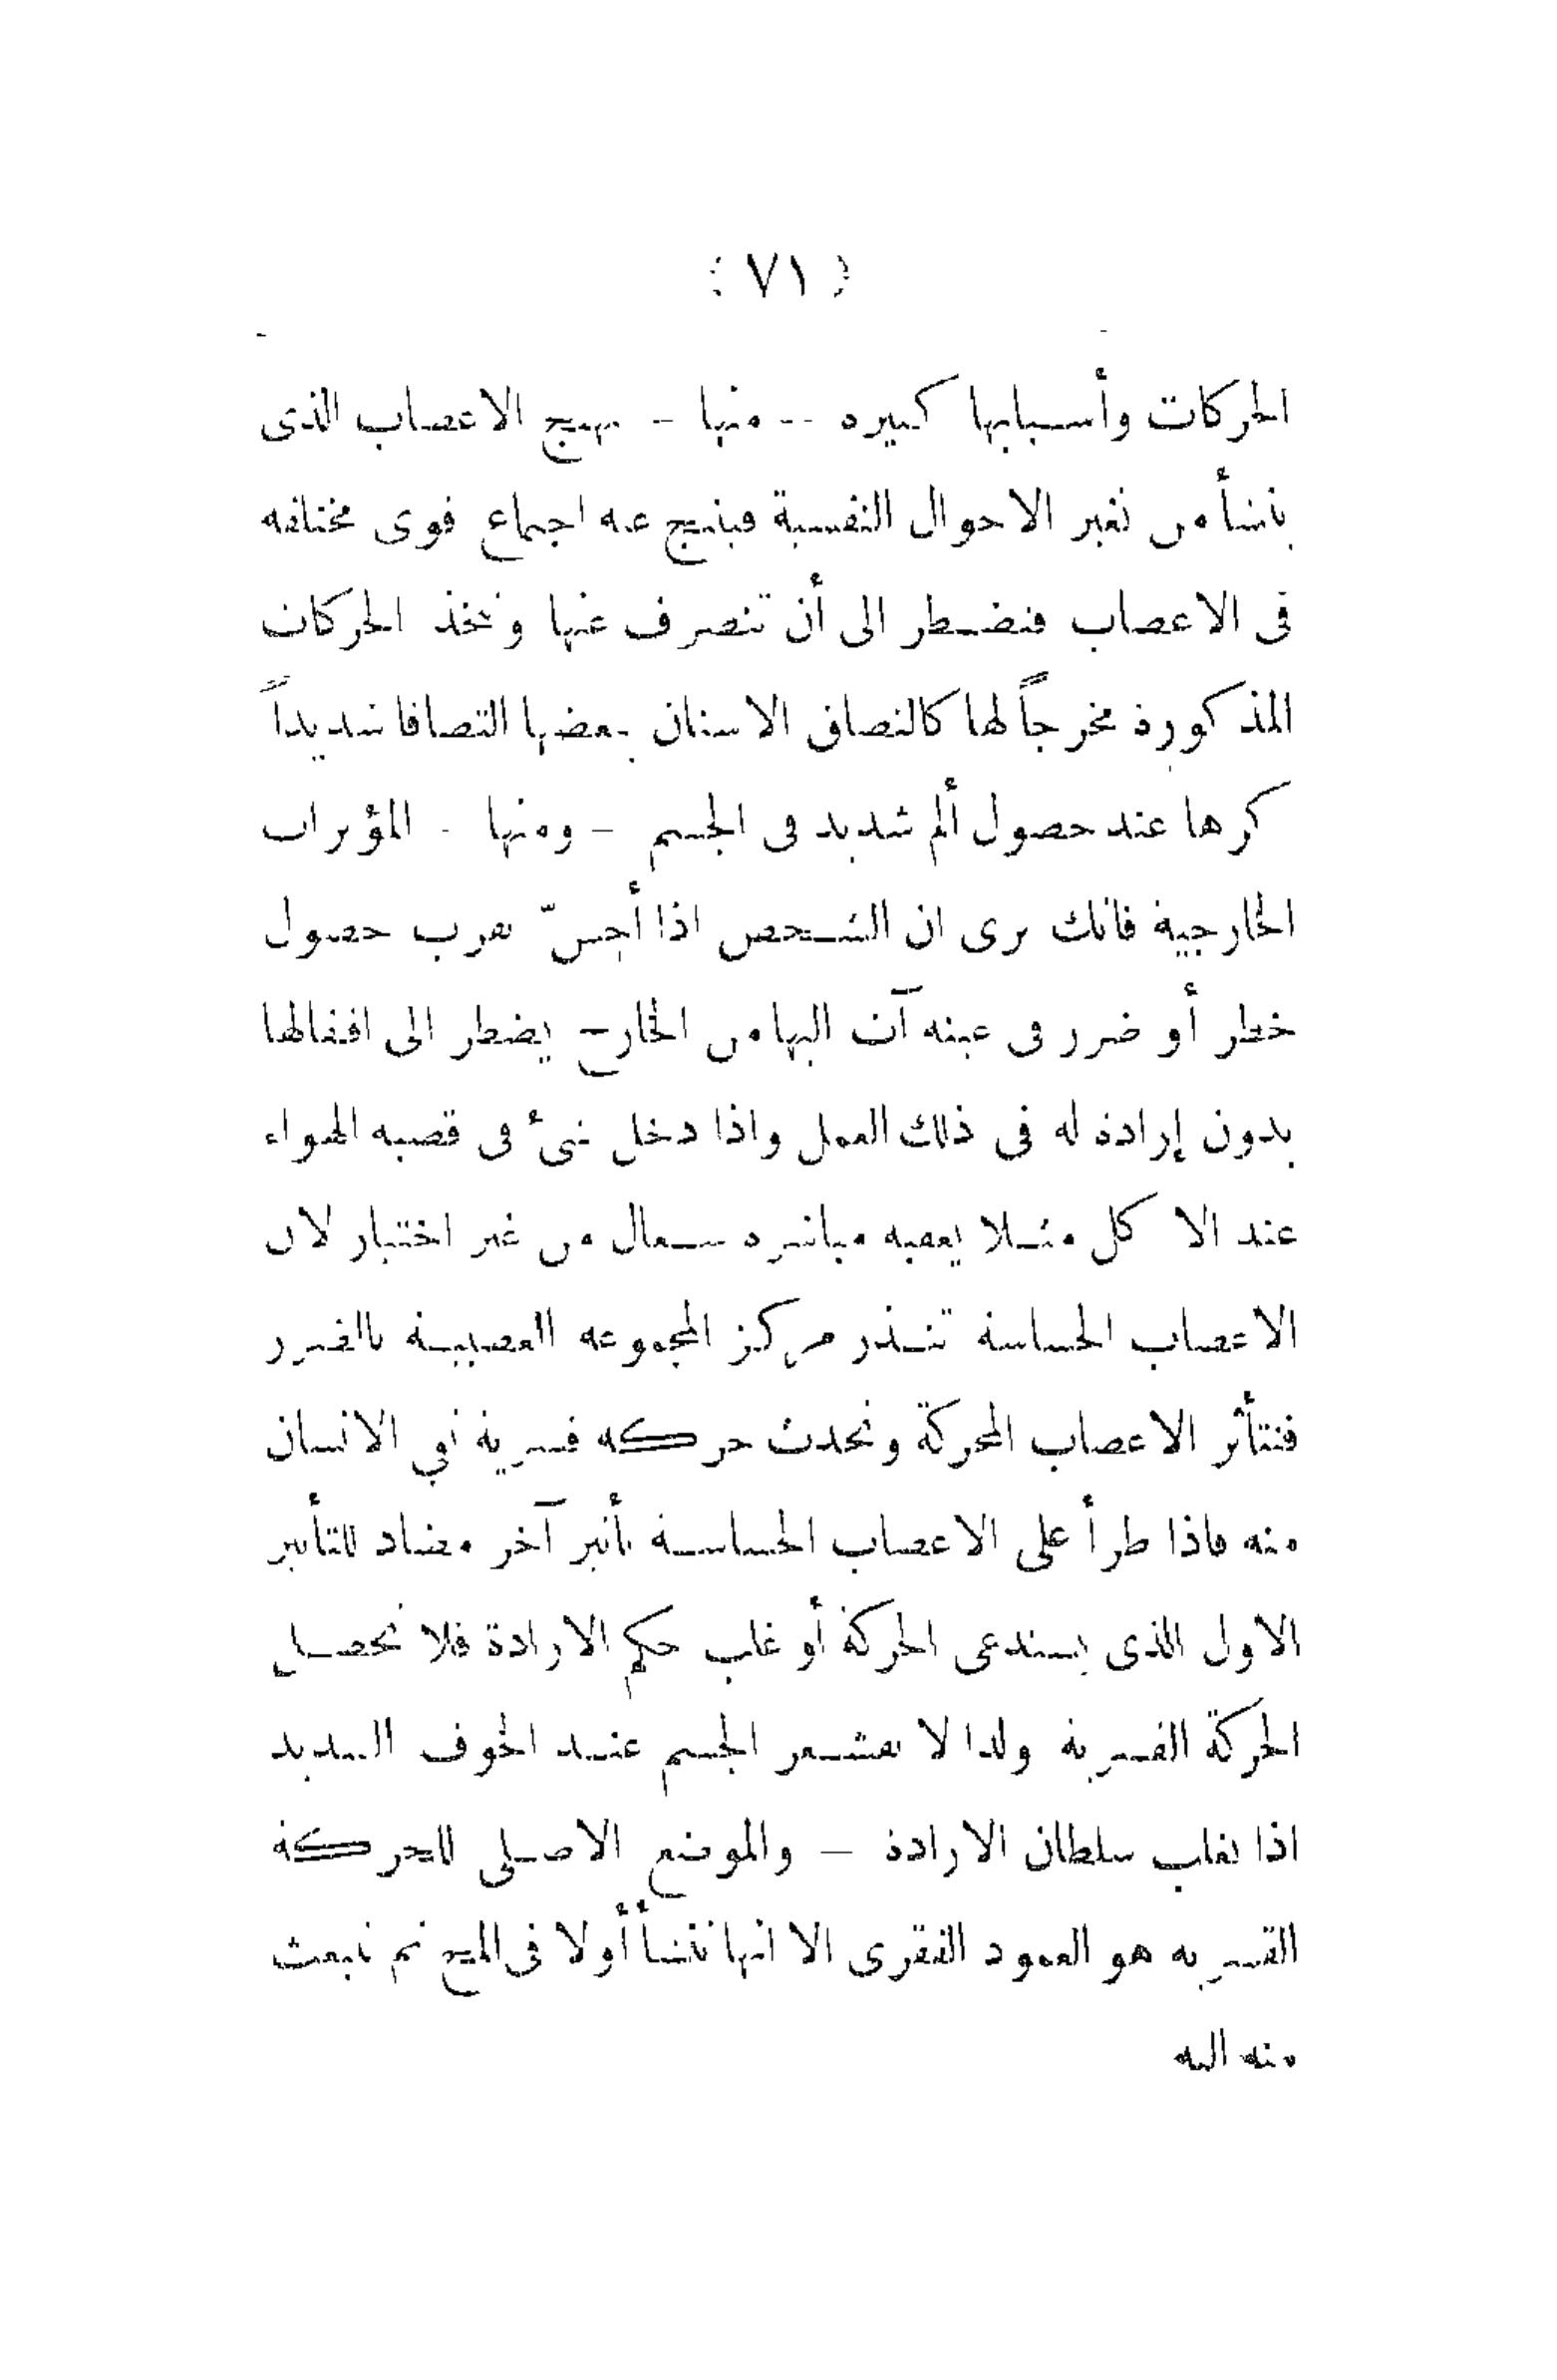 ( ٧١ )
الحركات وأسبابها كثيرة -- منها - تهيج الاعصاب الذى
ينشأ من تغير الاحوال النفسية فينتج عنه اجتماع قوى مختلفة
فى الاعصاب فتضطر الى أن تنصرف عنها وتتخذ الحركات
المذكورة مخرجاً لها كالتصاق الاسنان بعضها التصاقا شديداً
كرها عند حصول ألم شديد فى الجسم - ومنها - المؤثرات
الخارجية فانك ترى ان الشخص اذا أحسّ بقرب حصول
خطر أو ضرر فى عينه آت اليها من الخارج يضطر الى اقفالها
بدون إرادة له فى ذلك العمل واذا دخل شئ فى قصبة الهواء
عند الاكل مثلا يعقبه مباشرة سعال من غير اختيار لان
الاعصاب الحساسة تنذر مركز المجموعة العصبية بالضرر
فتتأثر الاعصاب المحركة وتحدث حركة قسرية تقي الانسان
منه فاذا طرأ على الاعصاب الحساسة تأثير آخر مضاد للتأثير
الاول الذى يستدعى الحركة أو غلب حكم الارادة فلا تحصل
الحركة القسرية ولذا لا يقشعر الجسم عند الخوف الشديد
اذا تغلب سلطان الارادة - والموضع الاصلى للحركة
القسرية هو العمود الفقرى الا انها تنشأ أولا فى المخ ثم تنبعث
منه اليه